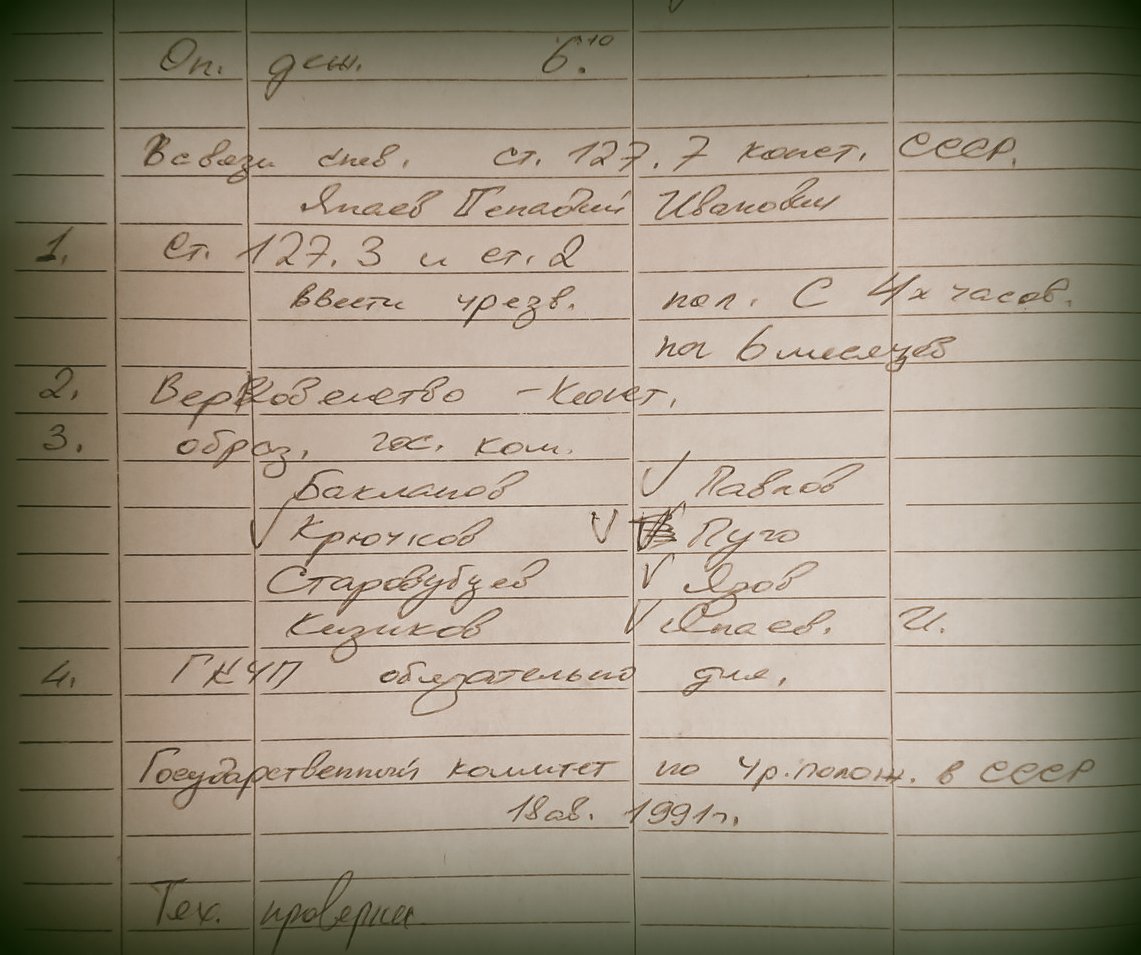 Оп. деж. 6.10
В связи ст. 127.7 конст. СССР.
Янаев Генадий Иванович
1. Ст. 127.3 и ст. 2
ввести чрезв. пол. С 4х часов.
на 6 месяцев
2. Верховенство - Конст.
3. образ. гос. ком.
Бакланов √ Павлов
√ Крючков √ √ Пуго
Стародубцев √ Язов
Кизиков √ Янаев. И.
4. ГКЧП обязательно для.
Государственный комитет по чр. полож. в СССР
18 ав. 1991г.
Тех. проверки